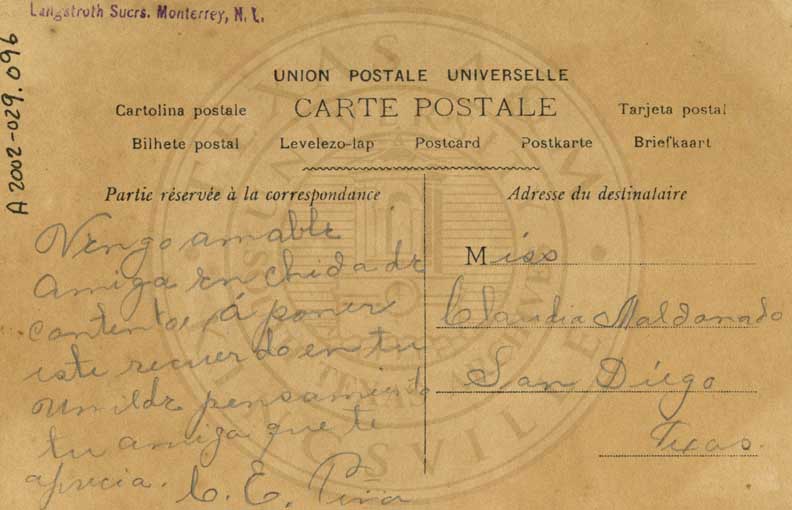 Langstroth Sucrs. Monterrey, N. L.
A 2002-029.096
UNION POSTALE UNIVERSELLE
Cartolina postale CARTE POSTALE Tarjeta postal
Bilhete postal Levelezo-lap Postcard Postkarte Briefkaart
Partie réservée à la correspondance
Vengo amable
amiga enchida de
contentos, á poner
este recuerdo en tu
umilde pensamiento
tu amiga que te
aprecia. C. E. Piña
Adresse du destinataire
Miss
Claudia Maldonado
San Diego
Texas.